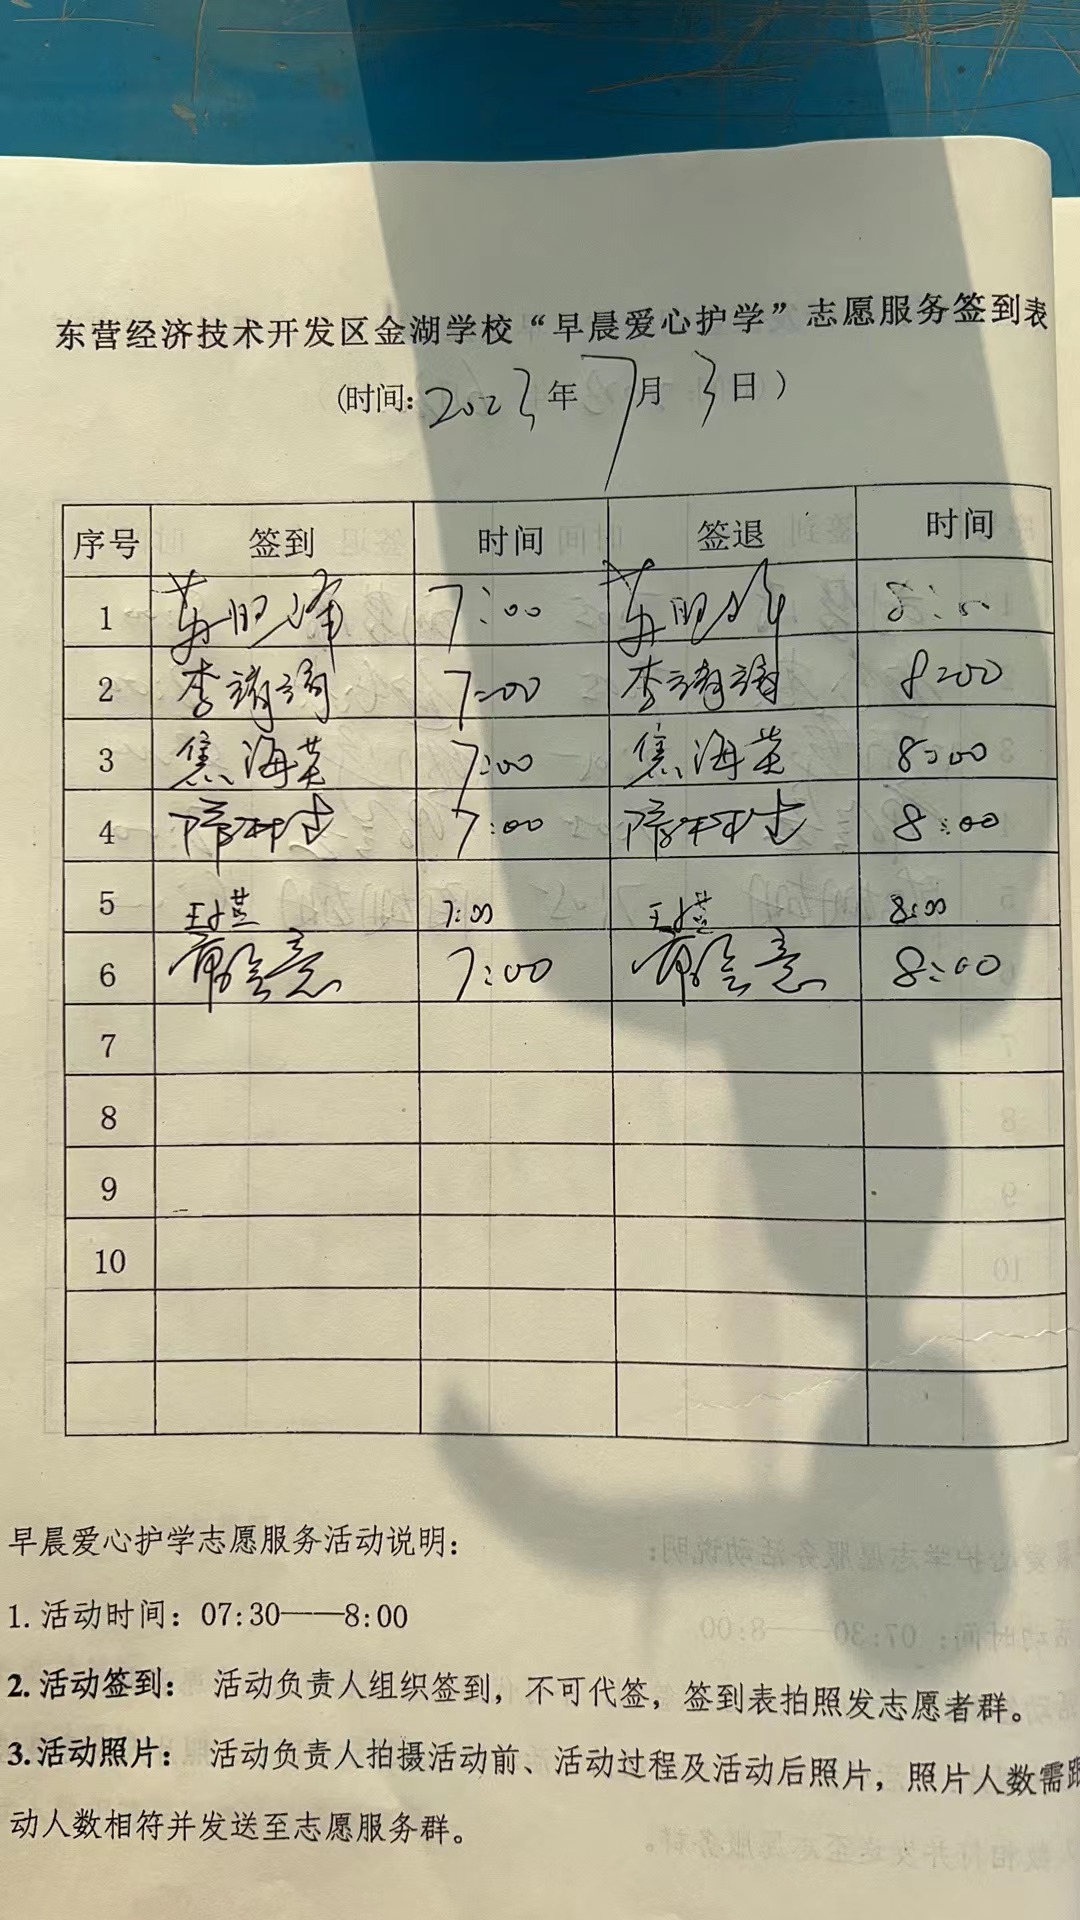 东营经济技术开发区金湖学校“早晨爱心护学”志愿服务签到表
(时间: 2023年7月3日)
序号 签到 时间 签退 时间
1 7:00 8:00
2 李靖靖 7:00 李靖靖 8:00
3 焦海英 7:00 焦海英 8:00
4 7:00 8:00
5 7:00 8:00
6 7:00 8:00
7
8
9
10
早晨爱心护学志愿服务活动说明:
1. 活动时间: 07:30——8:00
2. 活动签到: 活动负责人组织签到, 不可代签, 签到表拍照发志愿者群。
3. 活动照片: 活动负责人拍摄活动前、活动过程及活动后照片, 照片人数需跟
动人数相符并发送至志愿服务群。